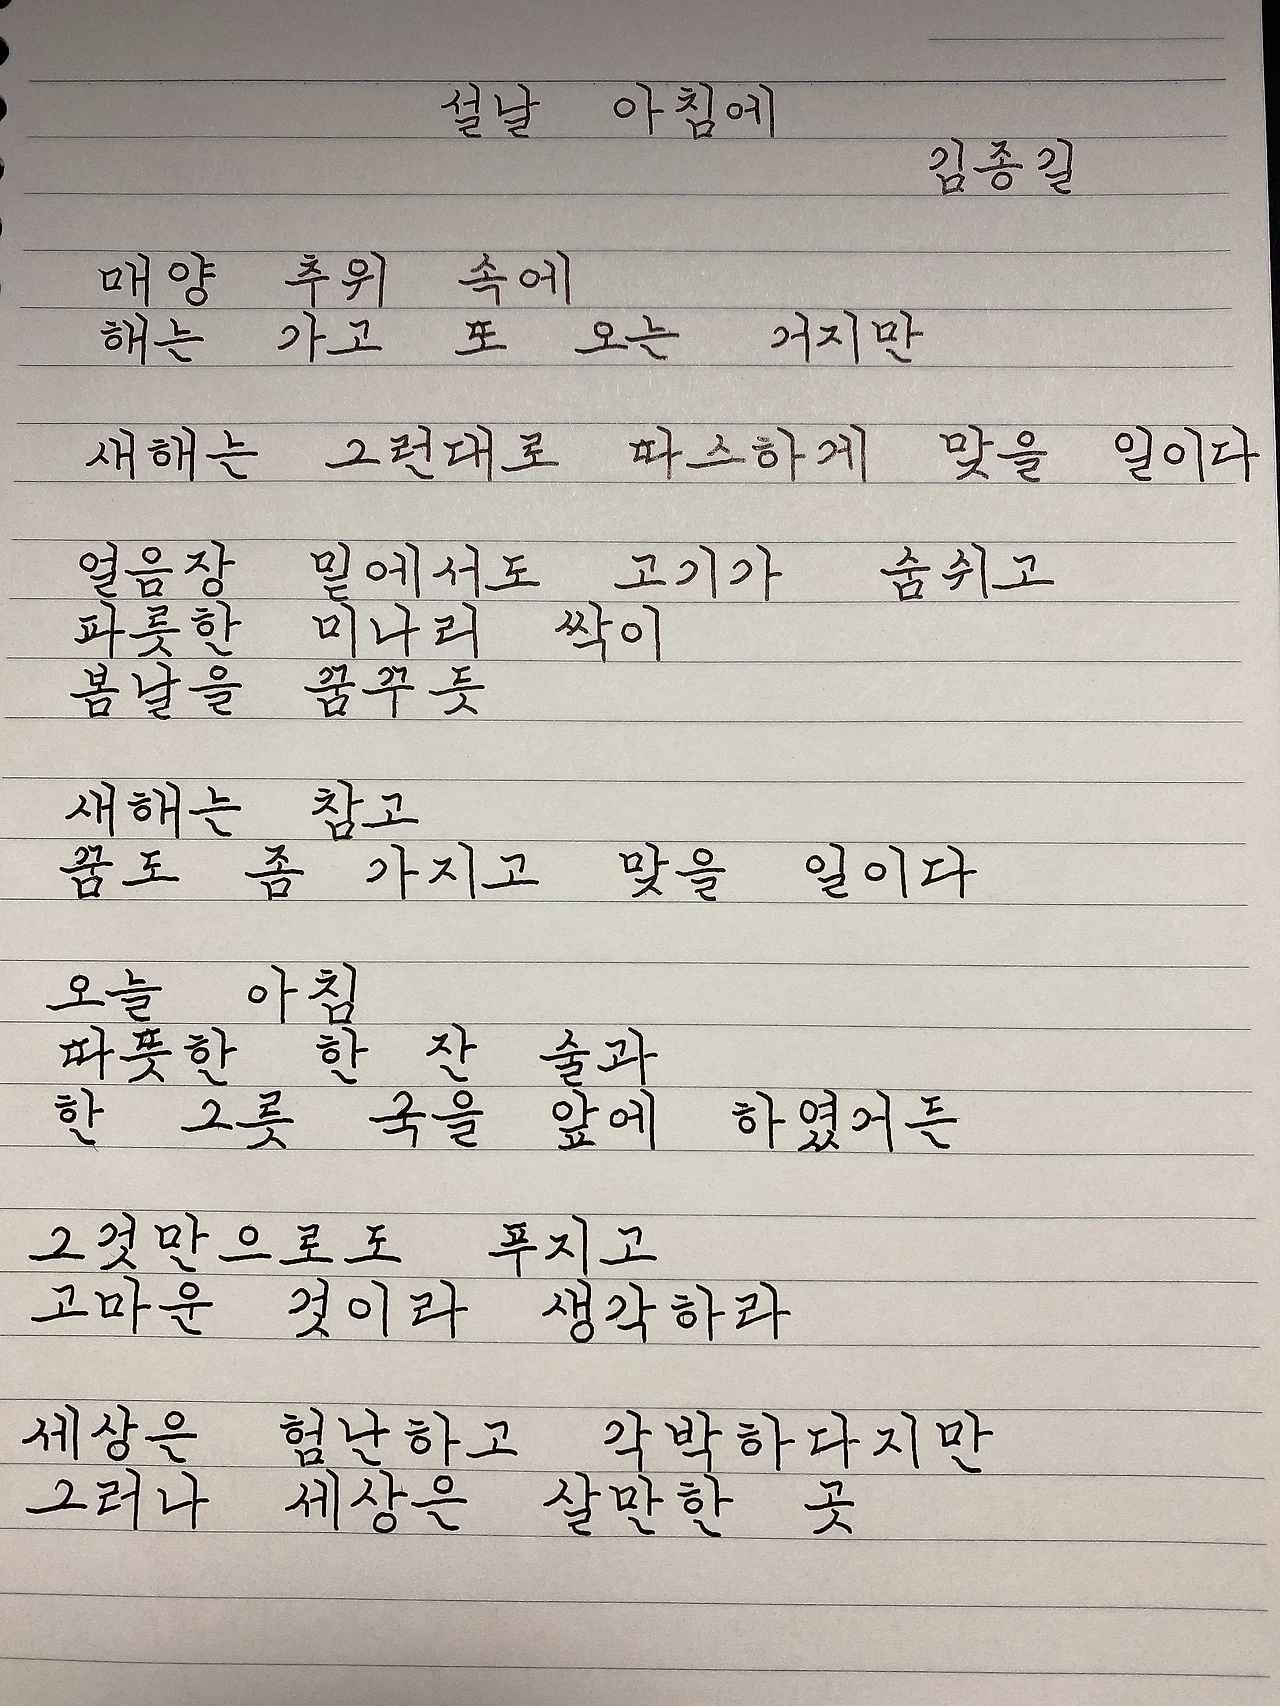 설날 아침에
김종길
매양 추위 속에
해는 가고 또 오는 거지만
새해는 그런대로 따스하게 맞을 일이다
얼음장 밑에서도 고기가 숨쉬고
파릇한 미나리 싹이
봄날을 꿈꾸듯
새해는 참고
꿈도 좀 가지고 맞을 일이다
오늘 아침
따뜻한 한 잔 술과
한 그릇 국을 앞에 하였거든
그것만으로도 푸지고
고마운 것이라 생각하라
세상은 험난하고 각박하다지만
그러나 세상은 살만한 곳